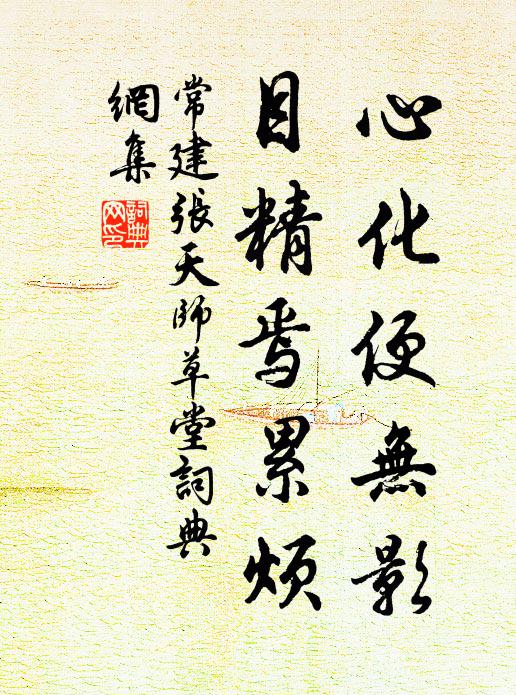 心化便無影
目精焉累煩
常建張天師草堂詞典
網集
詞典
网印